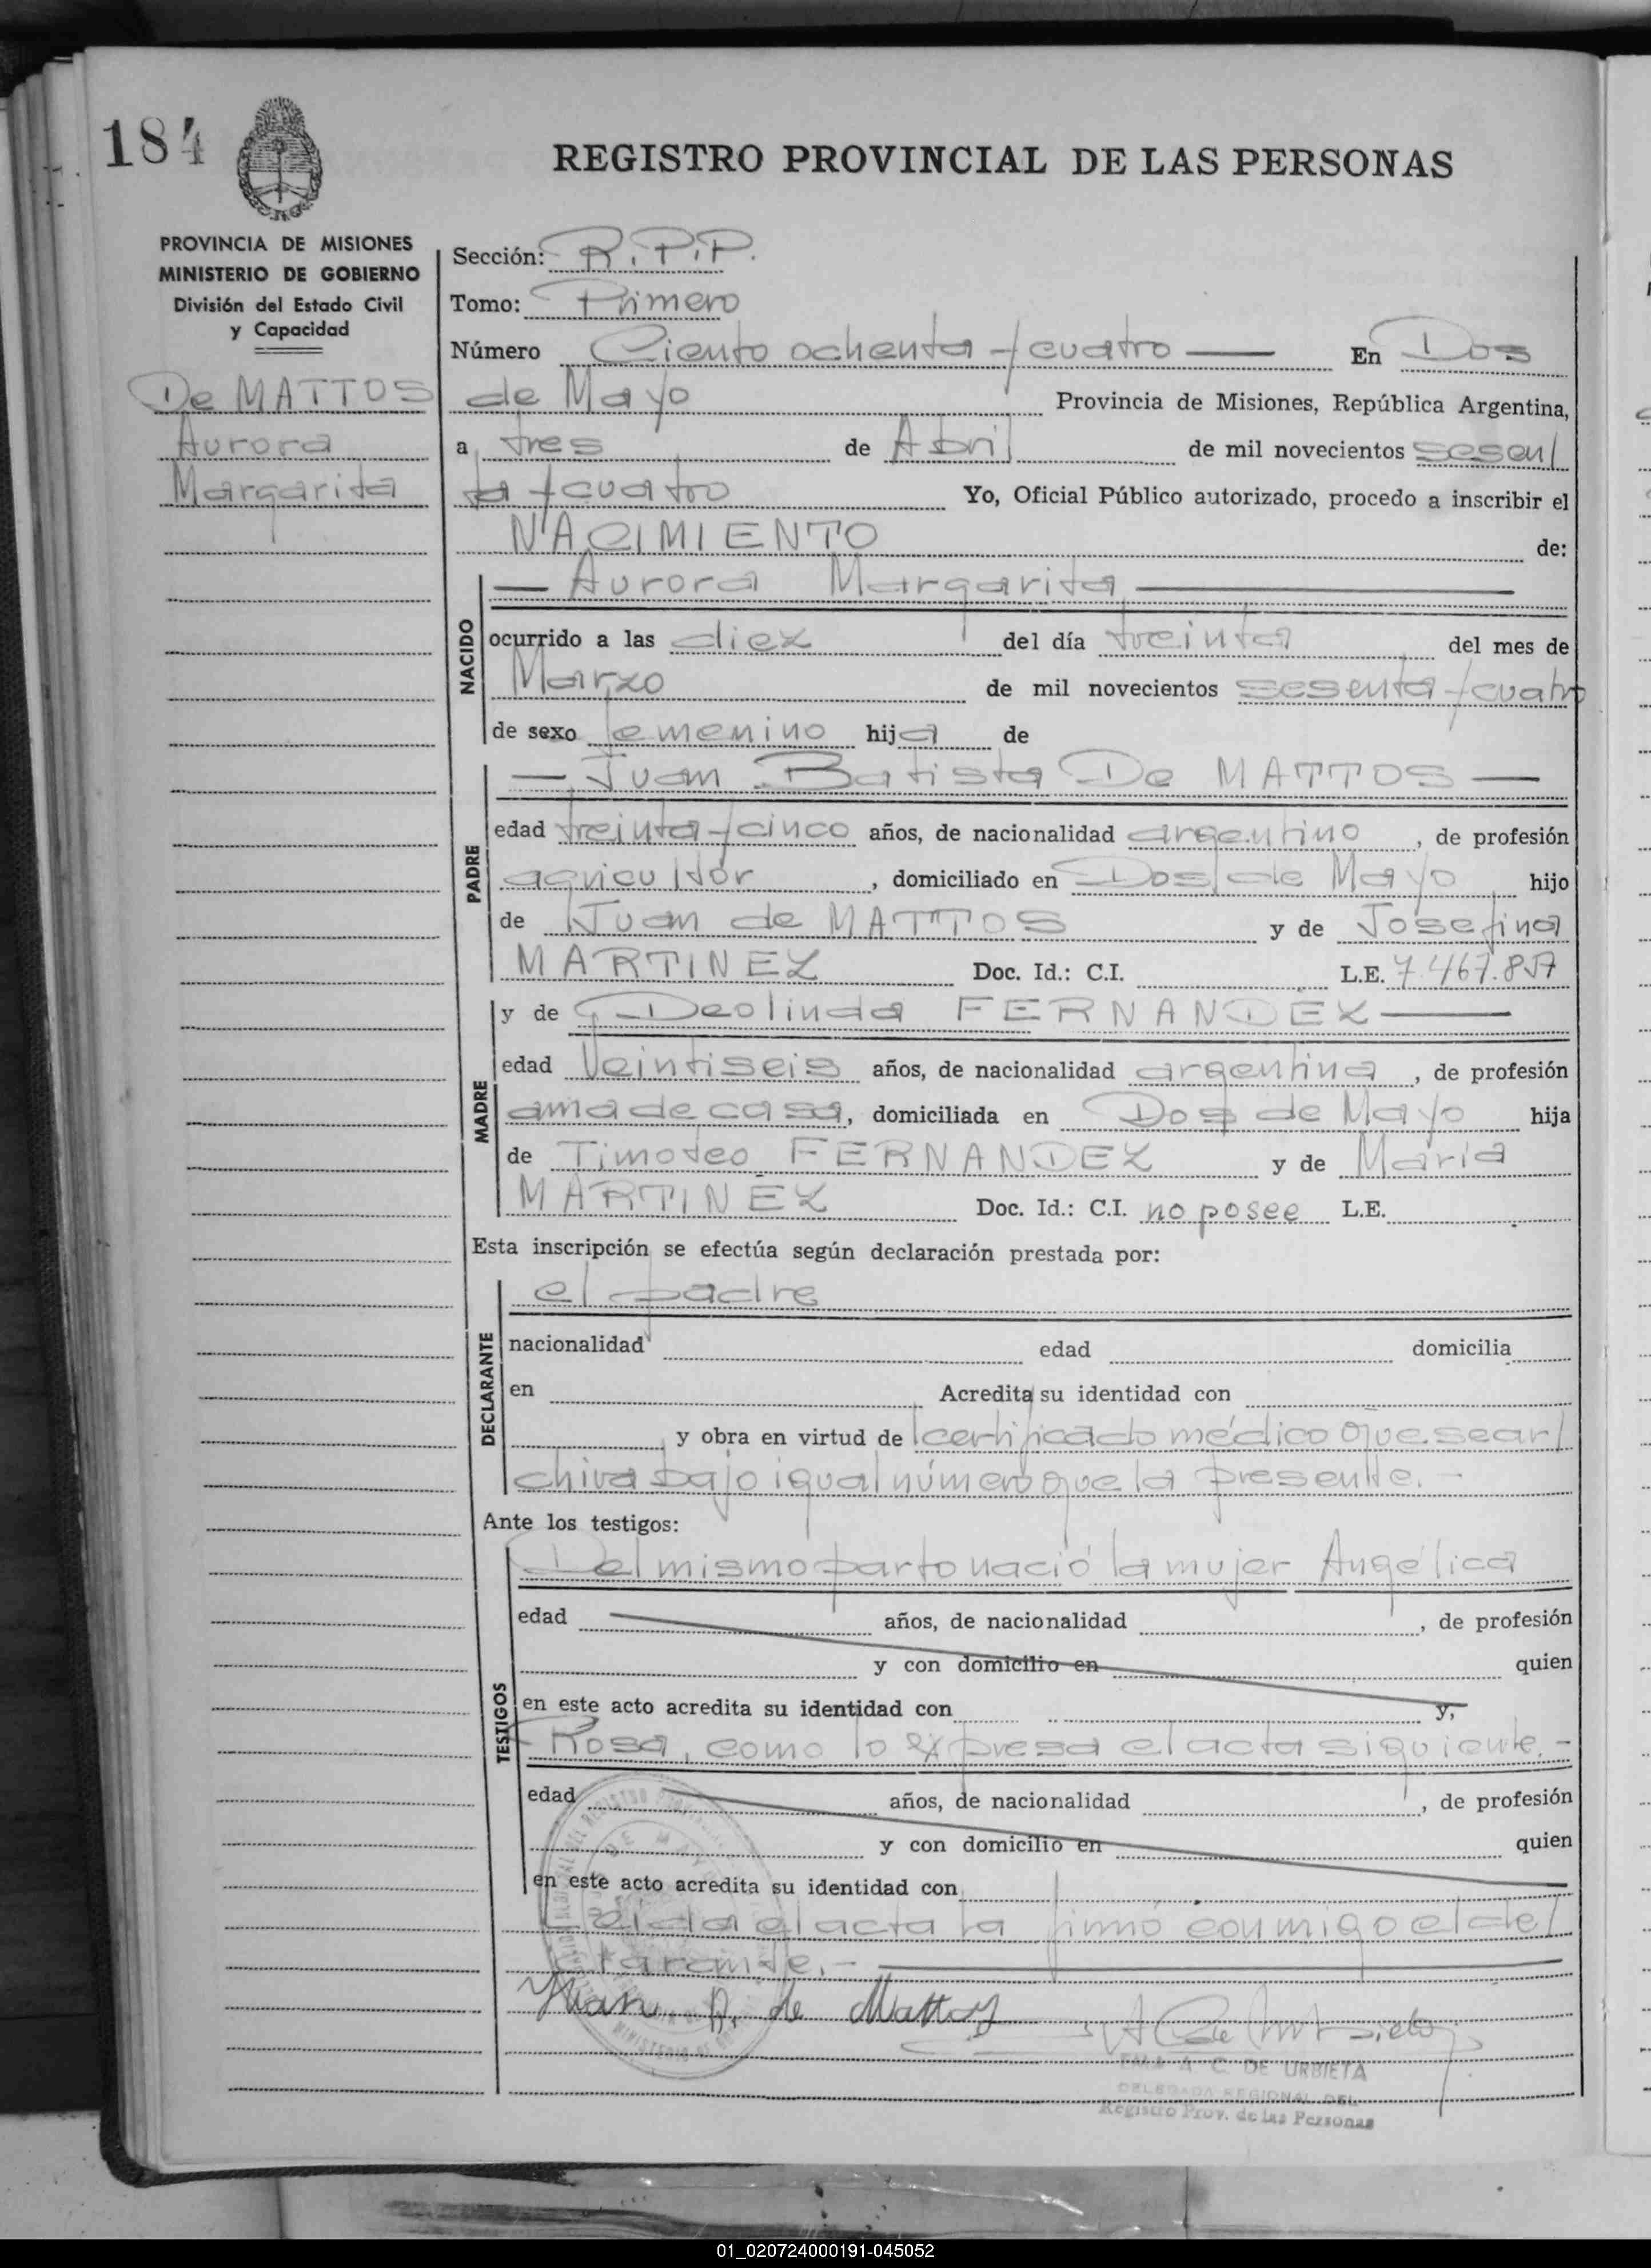 184
REGISTRO PROVINCIAL DE LAS PERSONAS
PROVINCIA DE MISIONES
MINISTERIO DE GOBIERNO
División del Estado Civil
y Capacidad
De MATTOS
Aurora
Margarita
Sección: R.P.P.
Tomo: Primero
Número Ciento ochenta y cuatro — En Dos
de Mayo Provincia de Misiones, República Argentina,
a tres de Abril de mil novecientos sesen/
ta y cuatro Yo, Oficial Público autorizado, procedo a inscribir el
NACIMIENTO de:
NACIDO
— Aurora Margarita —
ocurrido a las diez del día treinta del mes de
Marzo de mil novecientos sesenta y cuatro
de sexo femenino hija de
PADRE
— Juan Batista De MATTOS —
edad treinta y cinco años, de nacionalidad argentino, de profesión
agricultor, domiciliado en Dos de Mayo hijo
de Juan de MATTOS y de Josefina
MARTINEZ Doc. Id.: C.I. L.E. 7.467.857
MADRE
y de Deolinda FERNANDEZ —
edad Veintiseis años, de nacionalidad argentina, de profesión
ama de casa, domiciliada en Dos de Mayo hija
de Timoteo FERNANDEZ y de María
MARTINEZ Doc. Id.: C.I. no posee L.E.
Esta inscripción se efectúa según declaración prestada por:
DECLARANTE
el padre
nacionalidad edad domicilia
en Acredita su identidad con
y obra en virtud de certificado médico que se ar/
chiva bajo igual número que la presente.-
Ante los testigos:
TESTIGOS
Del mismo parto nació la mujer Angélica
edad años, de nacionalidad , de profesión
y con domicilio en quien
en este acto acredita su identidad con y,
Rosa, como lo expresa el acta siguiente.-
edad años, de nacionalidad , de profesión
y con domicilio en quien
en este acto acredita su identidad con
Leida el acta la firmó conmigo el de/
clarante.-
Juan B. de Mattos
EMA A. C. DE URBIETA
DELEGADA REGIONAL DEL
Registro Prov. de las Personas
01_020724000191-045052